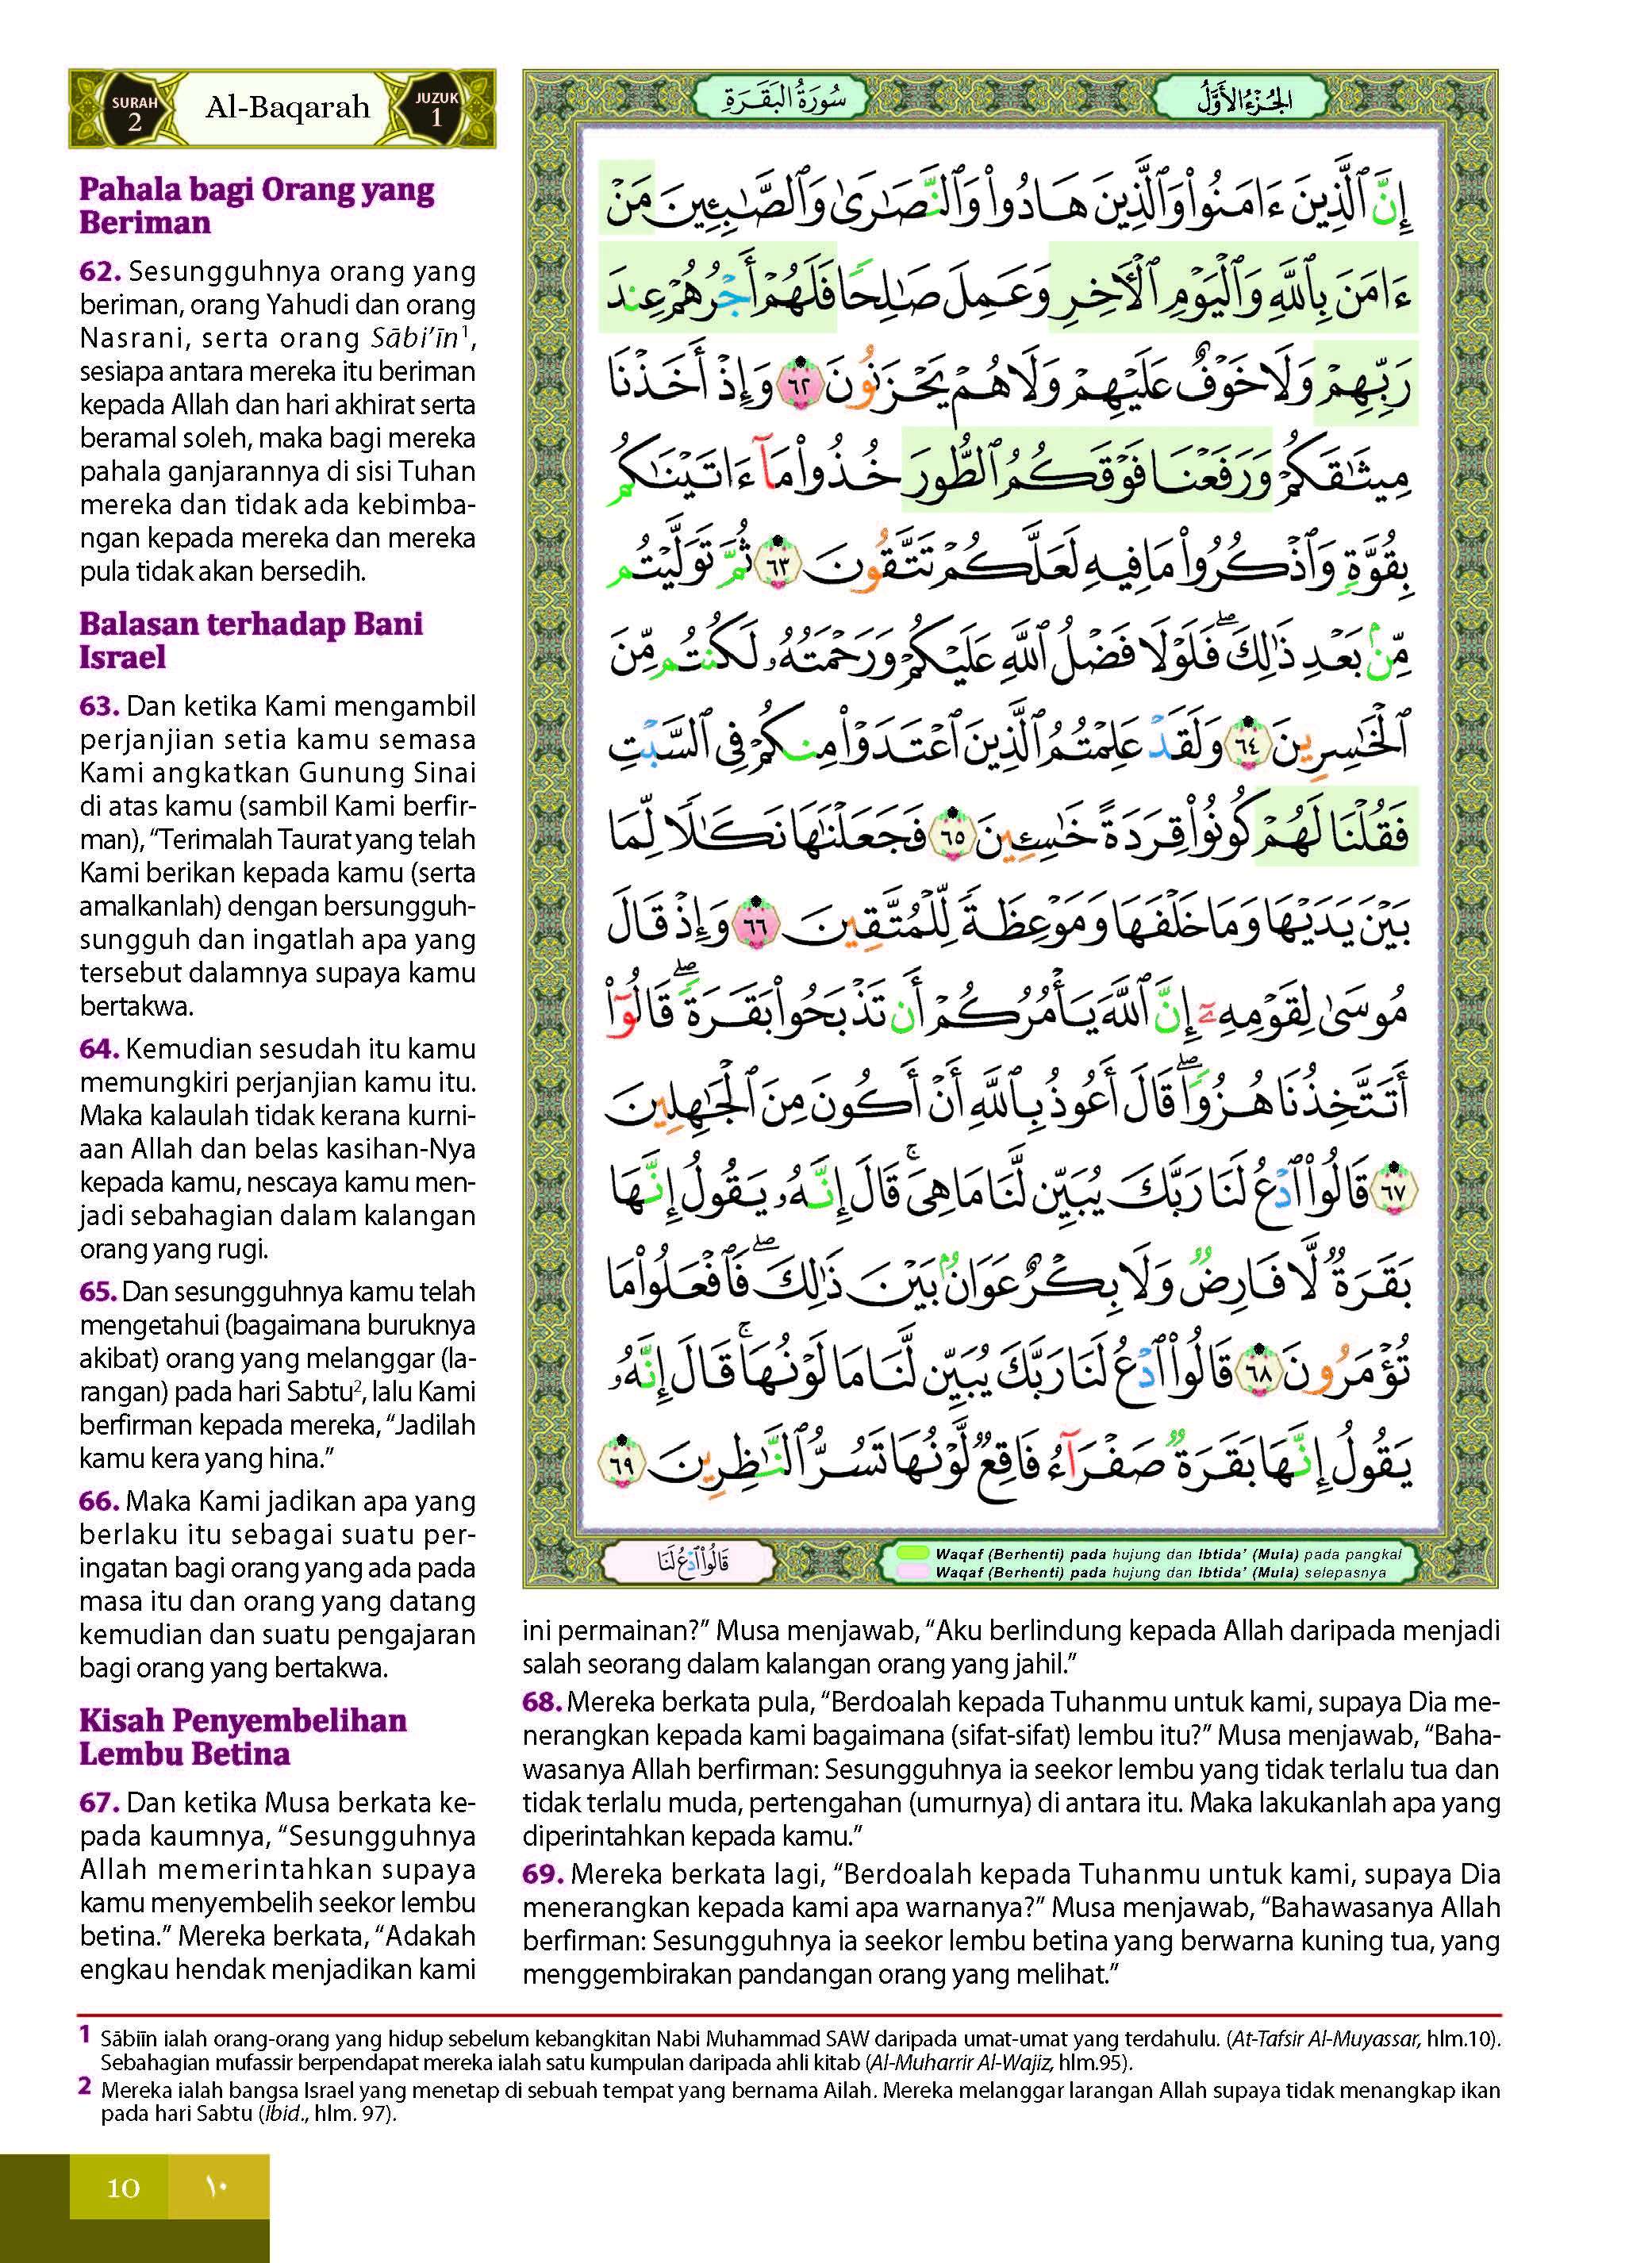 SURAH 2
Al-Baqarah
JUZUK 1
Pahala bagi Orang yang
Beriman
62. Sesungguhnya orang yang
beriman, orang Yahudi dan orang
Nasrani, serta orang Sābi’īn¹,
sesiapa antara mereka itu beriman
kepada Allah dan hari akhirat serta
beramal soleh, maka bagi mereka
pahala ganjarannya di sisi Tuhan
mereka dan tidak ada kebimba-
ngan kepada mereka dan mereka
pula tidak akan bersedih.
Balasan terhadap Bani
Israel
63. Dan ketika Kami mengambil
perjanjian setia kamu semasa
Kami angkatkan Gunung Sinai
di atas kamu (sambil Kami berfir-
man), “Terimalah Taurat yang telah
Kami berikan kepada kamu (serta
amalkanlah) dengan bersungguh-
sungguh dan ingatlah apa yang
tersebut dalamnya supaya kamu
bertakwa.
64. Kemudian sesudah itu kamu
memungkiri perjanjian kamu itu.
Maka kalaulah tidak kerana kurni-
aan Allah dan belas kasihan-Nya
kepada kamu, nescaya kamu men-
jadi sebahagian dalam kalangan
orang yang rugi.
65. Dan sesungguhnya kamu telah
mengetahui (bagaimana buruknya
akibat) orang yang melanggar (la-
rangan) pada hari Sabtu², lalu Kami
berfirman kepada mereka, “Jadilah
kamu kera yang hina.”
66. Maka Kami jadikan apa yang
berlaku itu sebagai suatu per-
ingatan bagi orang yang ada pada
masa itu dan orang yang datang
kemudian dan suatu pengajaran
bagi orang yang bertakwa.
Kisah Penyembelihan
Lembu Betina
67. Dan ketika Musa berkata ke-
pada kaumnya, “Sesungguhnya
Allah memerintahkan supaya
kamu menyembelih seekor lembu
betina.” Mereka berkata, “Adakah
engkau hendak menjadikan kami
الجُزْءُ الأَوَّلُ
سُورَةُ البَقَرَةِ
إِنَّ ٱلَّذِينَ ءَامَنُوا۟ وَٱلَّذِينَ هَادُوا۟ وَٱلنَّصَـٰرَىٰ وَٱلصَّـٰبِـِٔينَ مَنْ
ءَامَنَ بِٱللَّهِ وَٱلْيَوْمِ ٱلْـَٔاخِرِ وَعَمِلَ صَـٰلِحًا فَلَهُمْ أَجْرُهُمْ عِندَ
رَبِّهِمْ وَلَا خَوْفٌ عَلَيْهِمْ وَلَا هُمْ يَحْزَنُونَ ٦٢ وَإِذْ أَخَذْنَا
مِيثَـٰقَكُمْ وَرَفَعْنَا فَوْقَكُمُ ٱلطُّورَ خُذُوا۟ مَآ ءَاتَيْنَـٰكُم
بِقُوَّةٍ وَٱذْكُرُوا۟ مَا فِيهِ لَعَلَّكُمْ تَتَّقُونَ ٦٣ ثُمَّ تَوَلَّيْتُم
مِّنۢ بَعْدِ ذَٰلِكَ ۖ فَلَوْلَا فَضْلُ ٱللَّهِ عَلَيْكُمْ وَرَحْمَتُهُۥ لَكُنتُم مِّنَ
ٱلْخَـٰسِرِينَ ٦٤ وَلَقَدْ عَلِمْتُمُ ٱلَّذِينَ ٱعْتَدَوْا۟ مِنكُمْ فِى ٱلسَّبْتِ
فَقُلْنَا لَهُمْ كُونُوا۟ قِرَدَةً خَـٰسِـِٔينَ ٦٥ فَجَعَلْنَـٰهَا نَكَـٰلًا لِّمَا
بَيْنَ يَدَيْهَا وَمَا خَلْفَهَا وَمَوْعِظَةً لِّلْمُتَّقِينَ ٦٦ وَإِذْ قَالَ
مُوسَىٰ لِقَوْمِهِۦٓ إِنَّ ٱللَّهَ يَأْمُرُكُمْ أَن تَذْبَحُوا۟ بَقَرَةً ۖ قَالُوٓا۟
أَتَتَّخِذُنَا هُزُوًا ۖ قَالَ أَعُوذُ بِٱللَّهِ أَنْ أَكُونَ مِنَ ٱلْجَـٰهِلِينَ
٦٧ قَالُوا۟ ٱدْعُ لَنَا رَبَّكَ يُبَيِّن لَّنَا مَا هِىَ ۚ قَالَ إِنَّهُۥ يَقُولُ إِنَّهَا
بَقَرَةٌ لَّا فَارِضٌ وَلَا بِكْرٌ عَوَانٌۢ بَيْنَ ذَٰلِكَ ۖ فَٱفْعَلُوا۟ مَا
تُؤْمَرُونَ ٦٨ قَالُوا۟ ٱدْعُ لَنَا رَبَّكَ يُبَيِّن لَّنَا مَا لَوْنُهَا ۚ قَالَ إِنَّهُۥ
يَقُولُ إِنَّهَا بَقَرَةٌ صَفْرَآءُ فَاقِعٌ لَّوْنُهَا تَسُرُّ ٱلنَّـٰظِرِينَ ٦٩
قَالُوا۟ ٱدْعُ لَنَا
Waqaf (Berhenti) pada hujung dan Ibtida’ (Mula) pada pangkal
Waqaf (Berhenti) pada hujung dan Ibtida’ (Mula) selepasnya
ini permainan?” Musa menjawab, “Aku berlindung kepada Allah daripada menjadi
salah seorang dalam kalangan orang yang jahil.”
68. Mereka berkata pula, “Berdoalah kepada Tuhanmu untuk kami, supaya Dia me-
nerangkan kepada kami bagaimana (sifat-sifat) lembu itu?” Musa menjawab, “Baha-
wasanya Allah berfirman: Sesungguhnya ia seekor lembu yang tidak terlalu tua dan
tidak terlalu muda, pertengahan (umurnya) di antara itu. Maka lakukanlah apa yang
diperintahkan kepada kamu.”
69. Mereka berkata lagi, “Berdoalah kepada Tuhanmu untuk kami, supaya Dia
menerangkan kepada kami apa warnanya?” Musa menjawab, “Bahawasanya Allah
berfirman: Sesungguhnya ia seekor lembu betina yang berwarna kuning tua, yang
menggembirakan pandangan orang yang melihat.”
1 Sābiīn ialah orang-orang yang hidup sebelum kebangkitan Nabi Muhammad SAW daripada umat-umat yang terdahulu. (At-Tafsir Al-Muyassar, hlm.10).
Sebahagian mufassir berpendapat mereka ialah satu kumpulan daripada ahli kitab (Al-Muharrir Al-Wajiz, hlm.95).
2 Mereka ialah bangsa Israel yang menetap di sebuah tempat yang bernama Ailah. Mereka melanggar larangan Allah supaya tidak menangkap ikan
pada hari Sabtu (Ibid., hlm. 97).
10 ١٠